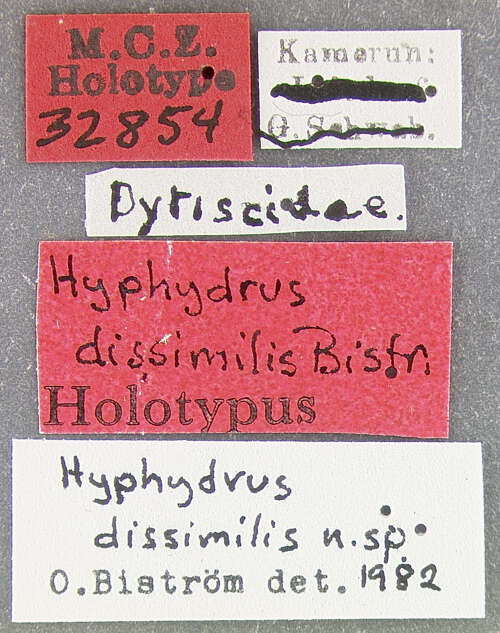 M.C.Z.
Holotype
32854
Kamerun:
G. Schwab.
Dytiscidae.
Hyphydrus
dissimilis Bistr.
Holotypus
Hyphydrus
dissimilis n.sp.
O.Biström det. 1982